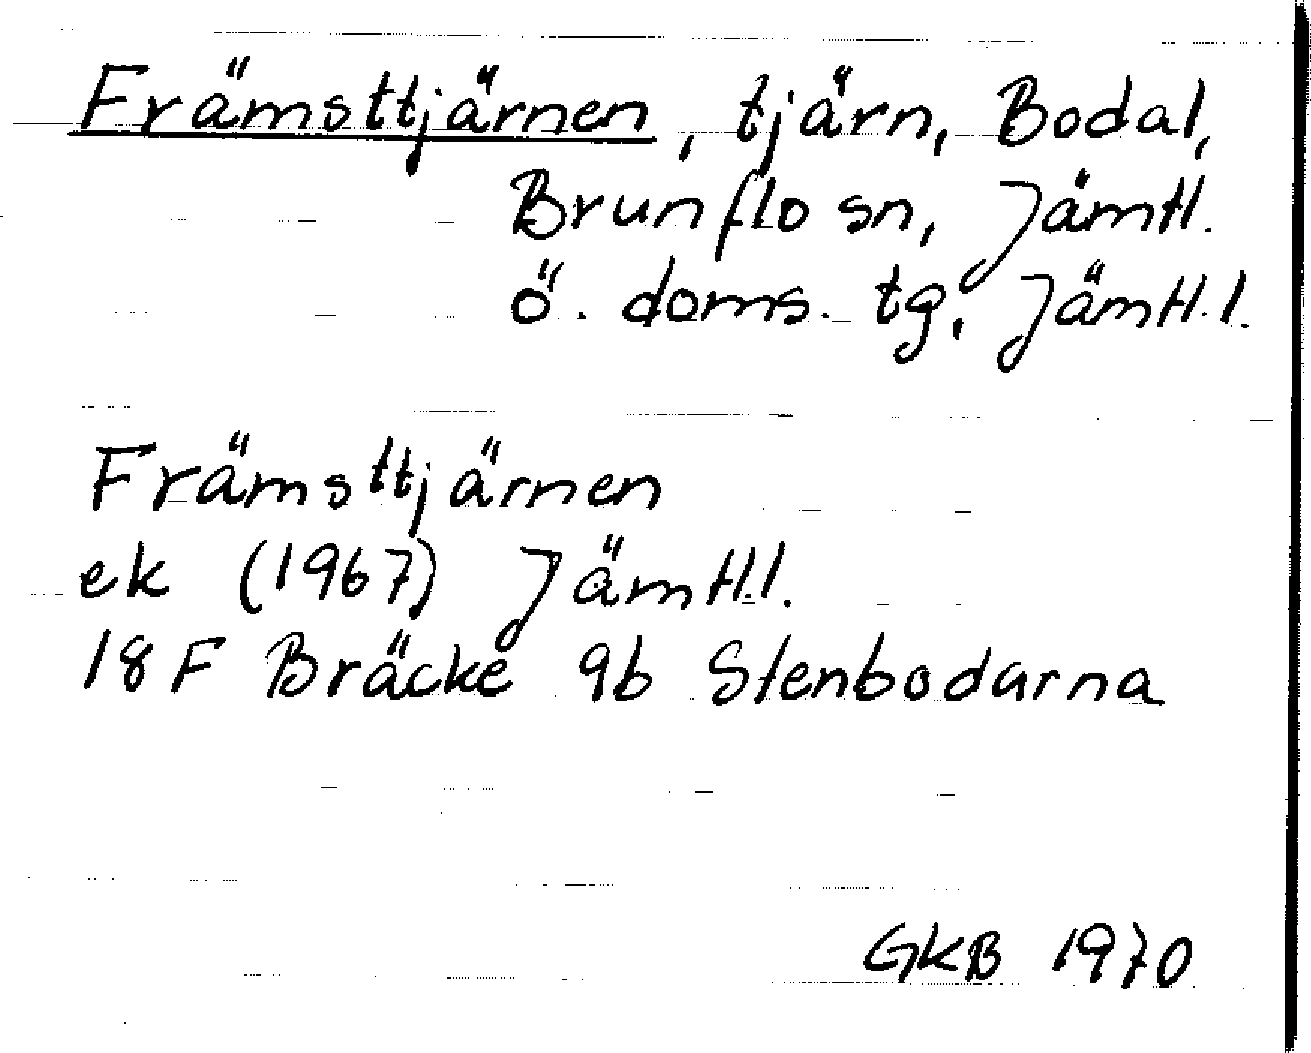 Främsttjärnen, tjärn, Bodal,
Brunflo sn, Jämtl.
ö. doms. tg, Jämtl.l.
Främsttjärnen
ek (1967) Jämtl.l.
18 F Bräcke 9b Stenbodarna
GKB 1970